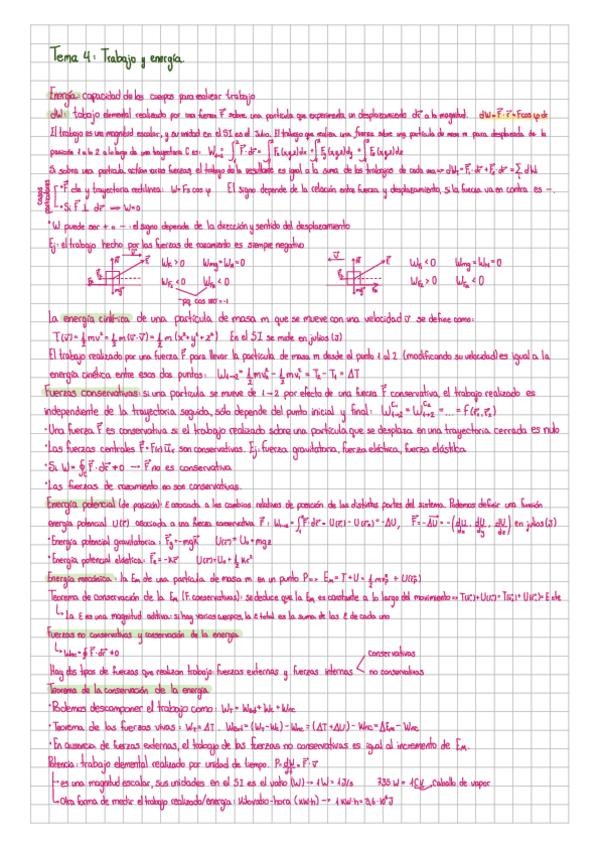 Tema 4: Trabajo y energía.
Energía: capacidad de los cuerpos para realizar trabajo
dW: trabajo elemental realizado por una fuerza F⃗ sobre una partícula que experimenta un desplazamiento dr⃗ a la magnitud. dW=F⃗·r⃗=Fcosφ dr
El trabajo es una magnitud escalar, y su unidad en el SI es el Julio. El trabajo que realiza una fuerza sobre una partícula de masa m para desplazarla de la
posición 1 a la 2 a lo largo de una trayectoria C es:
Si sobre una partícula actúan varias fuerzas, el trabajo de la resultante es igual a la suma de los trabajos de cada una
casos particulares
F⃗ cte y trayectoria rectilínea: W=Fs cos φ El signo depende de la relación entre fuerza y desplazamiento, si la fuerza va en contra es -.
Si F⃗ ⊥ dr⃗ ⟹ W=0
·W puede ser + o - : el signo depende de la dirección y sentido del desplazamiento
Ej: el trabajo hecho por las fuerzas de rozamiento es siempre negativo
La energía cinética de una partícula de masa m que se mueve con una velocidad v⃗ se define como:
T(v⃗)=½mv²=½m(v⃗·v⃗)=½m(x²+y²+z²) En el SI se mide en julios (J)
El trabajo realizado por una fuerza F⃗ para llevar la partícula de masa m desde el punto 1 al 2 (modificando su velocidad) es igual a la
energía cinética entre esos dos puntos: W₁₋₂=½mv₂²-½mv₁²=T₂-T₁=ΔT
Fuerzas conservativas: si una partícula se mueve de 1-2 por efecto de una fuerza F⃗ conservativa, el trabajo realizado es
independiente de la trayectoria seguida, sólo depende del punto inicial y final:
·Una fuerza F⃗ es conservativa si el trabajo realizado sobre una partícula que se desplaza en una trayectoria cerrada es nulo
·Las fuerzas centrales F⃗=F(r)u⃗r son conservativas. Ej: fuerza gravitatoria, fuerza eléctrica, fuerza elástica.
·Si W=∮F⃗·dr⃗≠0 → F⃗ no es conservativa
·Las fuerzas de rozamiento no son conservativas.
Energía potencial (de posición): E asociada a los cambios relativos de posición de las distintas partes del sistema. Podemos definir una función
energía potencial U(r⃗) asociada a una fuerza conservativa F⃗: en julios (J)
·Energía potencial gravitatoria: F⃗g=-mgk⃗ U(r⃗)=U₀+mgz
·Energía potencial elástica: F⃗e=-kr⃗ U(r⃗)=U₀+½kr²
Energía mecánica: la Em de una partícula de masa m en un punto
Teorema de conservación de la Em (F. conservativas): se deduce que la Em es constante a lo largo del movimiento
La E es una magnitud aditiva: si hay varios cuerpos, la E total es la suma de las E de cada uno
Fuerzas no conservativas y conservación de la energía
Wnc=∮F⃗·dr⃗≠0
Hay dos tipos de fuerzas que realizan trabajo: fuerzas externas y fuerzas internas
conservativas
no conservativas
Teorema de la conservación de la energía:
·Podemos descomponer el trabajo como:
·Teorema de las fuerzas vivas: WT=ΔT. Wext=(WT-Wc)-Wnc=(ΔT+ΔU)-Wnc=ΔEm-Wnc
·En ausencia de fuerzas externas, el trabajo de las fuerzas no conservativas es igual al incremento de Em.
Potencia: trabajo elemental realizado por unidad de tiempo. P=dW/dt=F⃗·v⃗
es una magnitud escalar, sus unidades en el SI es el vatio (W) → 1W=1J/s 735W=1CV caballo de vapor
Otra forma de medir el trabajo realizado/energía: kilovatio-hora (kW·h) → 1kW·h=3,6·10⁶J